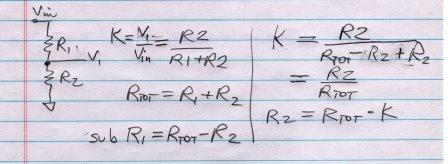 Vin
R1
V1
R2
K = V1/Vin = R2/(R1+R2)
RTOT = R1 + R2
sub R1 = RTOT - R2
K = R2/(RTOT - R2 + R2)
= R2/RTOT
R2 = RTOT · K